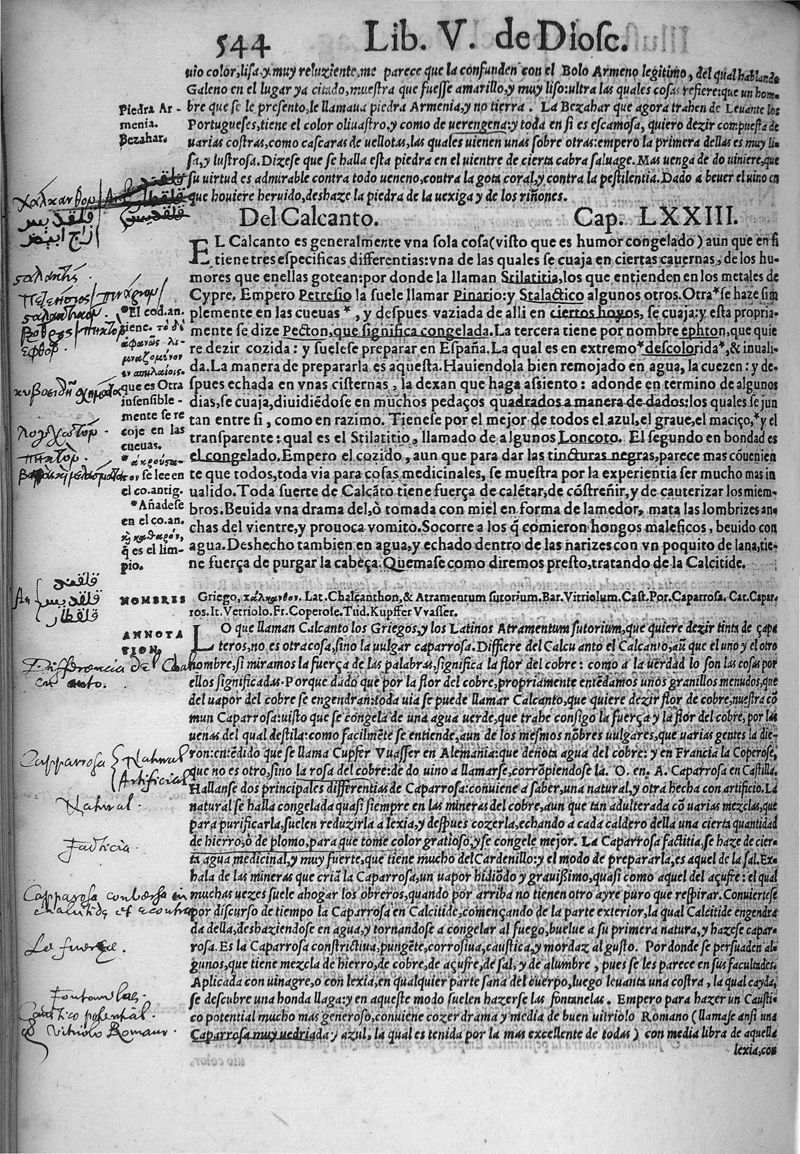 544 Lib. V. de Diosc.
uio color, lisa, y muy reluziente, me parece que la confunden con el Bolo Armeno legitimo, del qual hablando
Galeno en el lugar ya citado, muestra que fuesse amarillo, y muy liso: ultra las quales cosas refiere: que un hom-
bre que se le presento, le llamaua piedra Armenia, y no tierra. La Bezahar que agora trahen de Leuante los
Portugueses, tiene el color oliuastro, y como de uerengena: y toda en si es escamosa, quiero dezir compuesta de
uarias costras, como cascaras de uellotas, las quales uienen unas sobre otras: empero la primera dellas es muy li-
sa, y lustrosa. Dizese que se halla esta piedra en el uientre de cierta cabra saluage. Mas uenga de do uiniere, que
su uirtud es admirable contra todo ueneno, contra la gota coral, y contra la pestilentia. Dado a beuer el uino en
que houiere heruido, deshaze la piedra de la uexiga y de los riñones.
Piedra Ar-
menia.
Bezahar.
Del Calcanto. Cap. LXXIII.
EL Calcanto es generalmente vna sola cosa (visto que es humor congelado) aun que en si
tiene tres especificas differentias: vna de las quales se cuaja en ciertas cauernas, de los hu-
mores que enellas gotean: por donde la llaman Stilatitia, los que entienden en los metales de
Cypre. Empero Petresio la suele llamar Pinario: y Stalactico algunos otros. Otra * se haze sim
plemente en las cueuas *, y despues vaziada de alli en ciertos hoyos, se cuaja: y esta propria-
mente se dize Pecton, que significa congelada. La tercera tiene por nombre ephton, que quie
re dezir cozida: y suelese preparar en España. La qual es en extremo * descolorida *, & inuali-
da. La manera de prepararla es aquesta. Hauiendola bien remojado en agua, la cuezen: y de-
spues echada en vnas cisternas, la dexan que haga assiento: adonde en termino de algunos
dias, se cuaja, diuidiẽdose en muchos pedaços quadrados a manera de dados: los quales se jun
tan entre si, como en razimo. Tienese por el mejor de todos el azul, el graue, el maciço, * y el
transparente: qual es el Stilatitio, llamado de algunos Loncoto. El segundo en bondad es
el congelado. Empero el cozido, aun que para dar las tincturas negras, parece mas cõuenien
te que todos, toda via para cosas medicinales, se muestra por la experientia ser mucho mas in
ualido. Toda suerte de Calcãto tiene fuerça de calẽtar, de cõstreñir, y de cauterizar los miem-
bros. Beuida vna drama del, ò tomada con miel en forma de lamedor, mata las lombrizes an-
chas del vientre, y prouoca vomito. Socorre a los q̃ comieron hongos maleficos, beuido con
agua. Deshecho tambien en agua, y echado dentro de las narizes con vn poquito de lana, tie-
ne fuerça de purgar la cabeça. Quemase como diremos presto, tratando de la Calcitide.
*El cod. an.
tiene.
que es Otra
insensible-
mente se re
coje en las
cueuas.
se lee en
el co. antig.
*Añadese
en el co. an.
q̃ es el lim-
pio.
NOMBRES Griego, χάλκανθον. Lat. Chalcanthon, & Atramentum sutorium. Bar. Vitriolum. Cast. Por. Caparrosa. Cat. Capar-
ros. It. Vetriolo. Fr. Coperose. Tud. Kupffer Vvasser.
ANNOTA
TION.
LO que llaman Calcanto los Griegos, y los Latinos Atramentum sutorium, que quiere dezir tinta de çapa
teros, no es otra cosa, sino la uulgar caparrosa. Differe del Calcu anto el Calcanto, aũ que el uno y el otro
nombre, si miramos la fuerça de las palabras, significa la flor del cobre: como a la uerdad lo son las cosas por
ellos significadas. Porque dado que por la flor del cobre, propriamente entẽdamos unos granillos menudos, que
del uapor del cobre se engendran: toda uia se puede llamar Calcanto, que quiere dezir flor de cobre, nuestra cõ
mun Caparrosa: uisto que se congela de una agua uerde, que trahe consigo la fuerça y la flor del cobre, por las
uenas del qual destila: como facilmẽte se entiende, aun de los mesmos nõbres uulgares, que uarias gentes la die-
ron: entẽdido que se llama Cupfer Vuasser en Alemania: que denota agua del cobre: y en Francia la Coperose,
que no es otro, sino la rosa del cobre: de do uino a llamarse, corrõpiendose la. O. en. A. Caparrosa en Castilla.
Hallanse dos principales differentias de Caparrosa: conuiene a saber, una natural, y otra hecha con artificio. La
natural se halla congelada quasi siempre en las mineras del cobre, aun que tan adulterada cõ uarias mezclas, que
para purificarla, suelen reduzirla a lexia, y despues cozerla, echando a cada caldero della una cierta quantidad
de hierro, ò de plomo, para que tome color gratioso, y se congele mejor. La Caparrosa factitia, se haze de cier-
ta agua medicinal, y muy fuerte, que tiene mucho del Cardenillo: y el modo de prepararla, es aquel de la sal. Ex
hala de las mineras que criã la Caparrosa, un uapor hidiõdo y grauißimo, quasi como aquel del açufre: el qual
muchas uezes suele ahogar los obreros, quando por arriba no tienen otro ayre puro que respirar. Conuiertese
por discurso de tiempo la Caparrosa en Calcitide, començando de la parte exterior, la qual Calcitide engendra
da della, deshaziendose en agua, y tornandose a congelar al fuego, buelue a su primera natura, y hazese capar-
rosa. Es la Caparrosa constrictiua, pungẽte, corrosiua, caustica, y mordaz al gusto. Por donde se persuaden al-
gunos, que tiene mezcla de hierro, de cobre, de açufre, de sal, y de alumbre, pues se les parece en sus facultades.
Aplicada con uinagre, o con lexia, en qualquier parte sana del cuerpo, luego leuanta una costra, la qual cayda,
se descubre una honda llaga: y en aqueste modo suelen hazerse las fontanelas. Empero para hazer un Causti-
co potential mucho mas generoso, conuiene cozer drama y media de buen uitriolo Romano (llamase ansi una
Caparrosa muy uedriada y azul, la qual es tenida por la mas excellente de todas) con media libra de aquella
lexia, con
Caparrosa
Natural
Artificial
Natural.
Facticia.
Fontanelas
Caustico potential.
Vitriolo Romano.